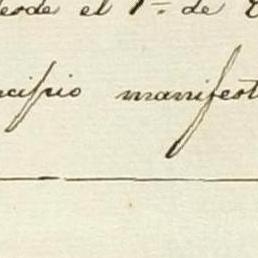 desde el 1º de
ncipio manifest